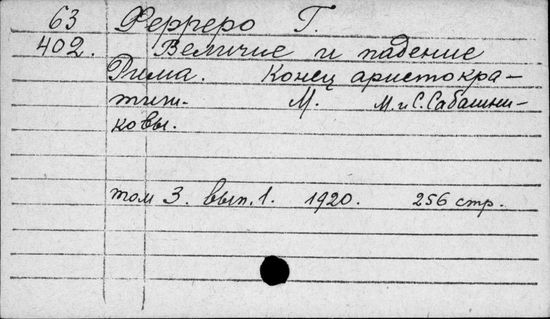 63 Ферреро Г.
402. Величие и падение
Рима. Конец аристокра-
тии. М. М. и С. Сабашни-
ковы.
том 3. вып. 1. 1920. 256 стр.